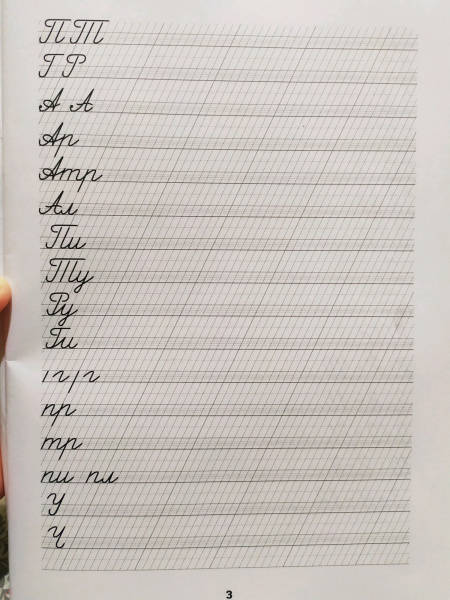 П Т
Г Р
А А
Ар
Атр
Ал
Пи
Ту
Ру
Ги
пр
тр
пи пл
У
Ч
3